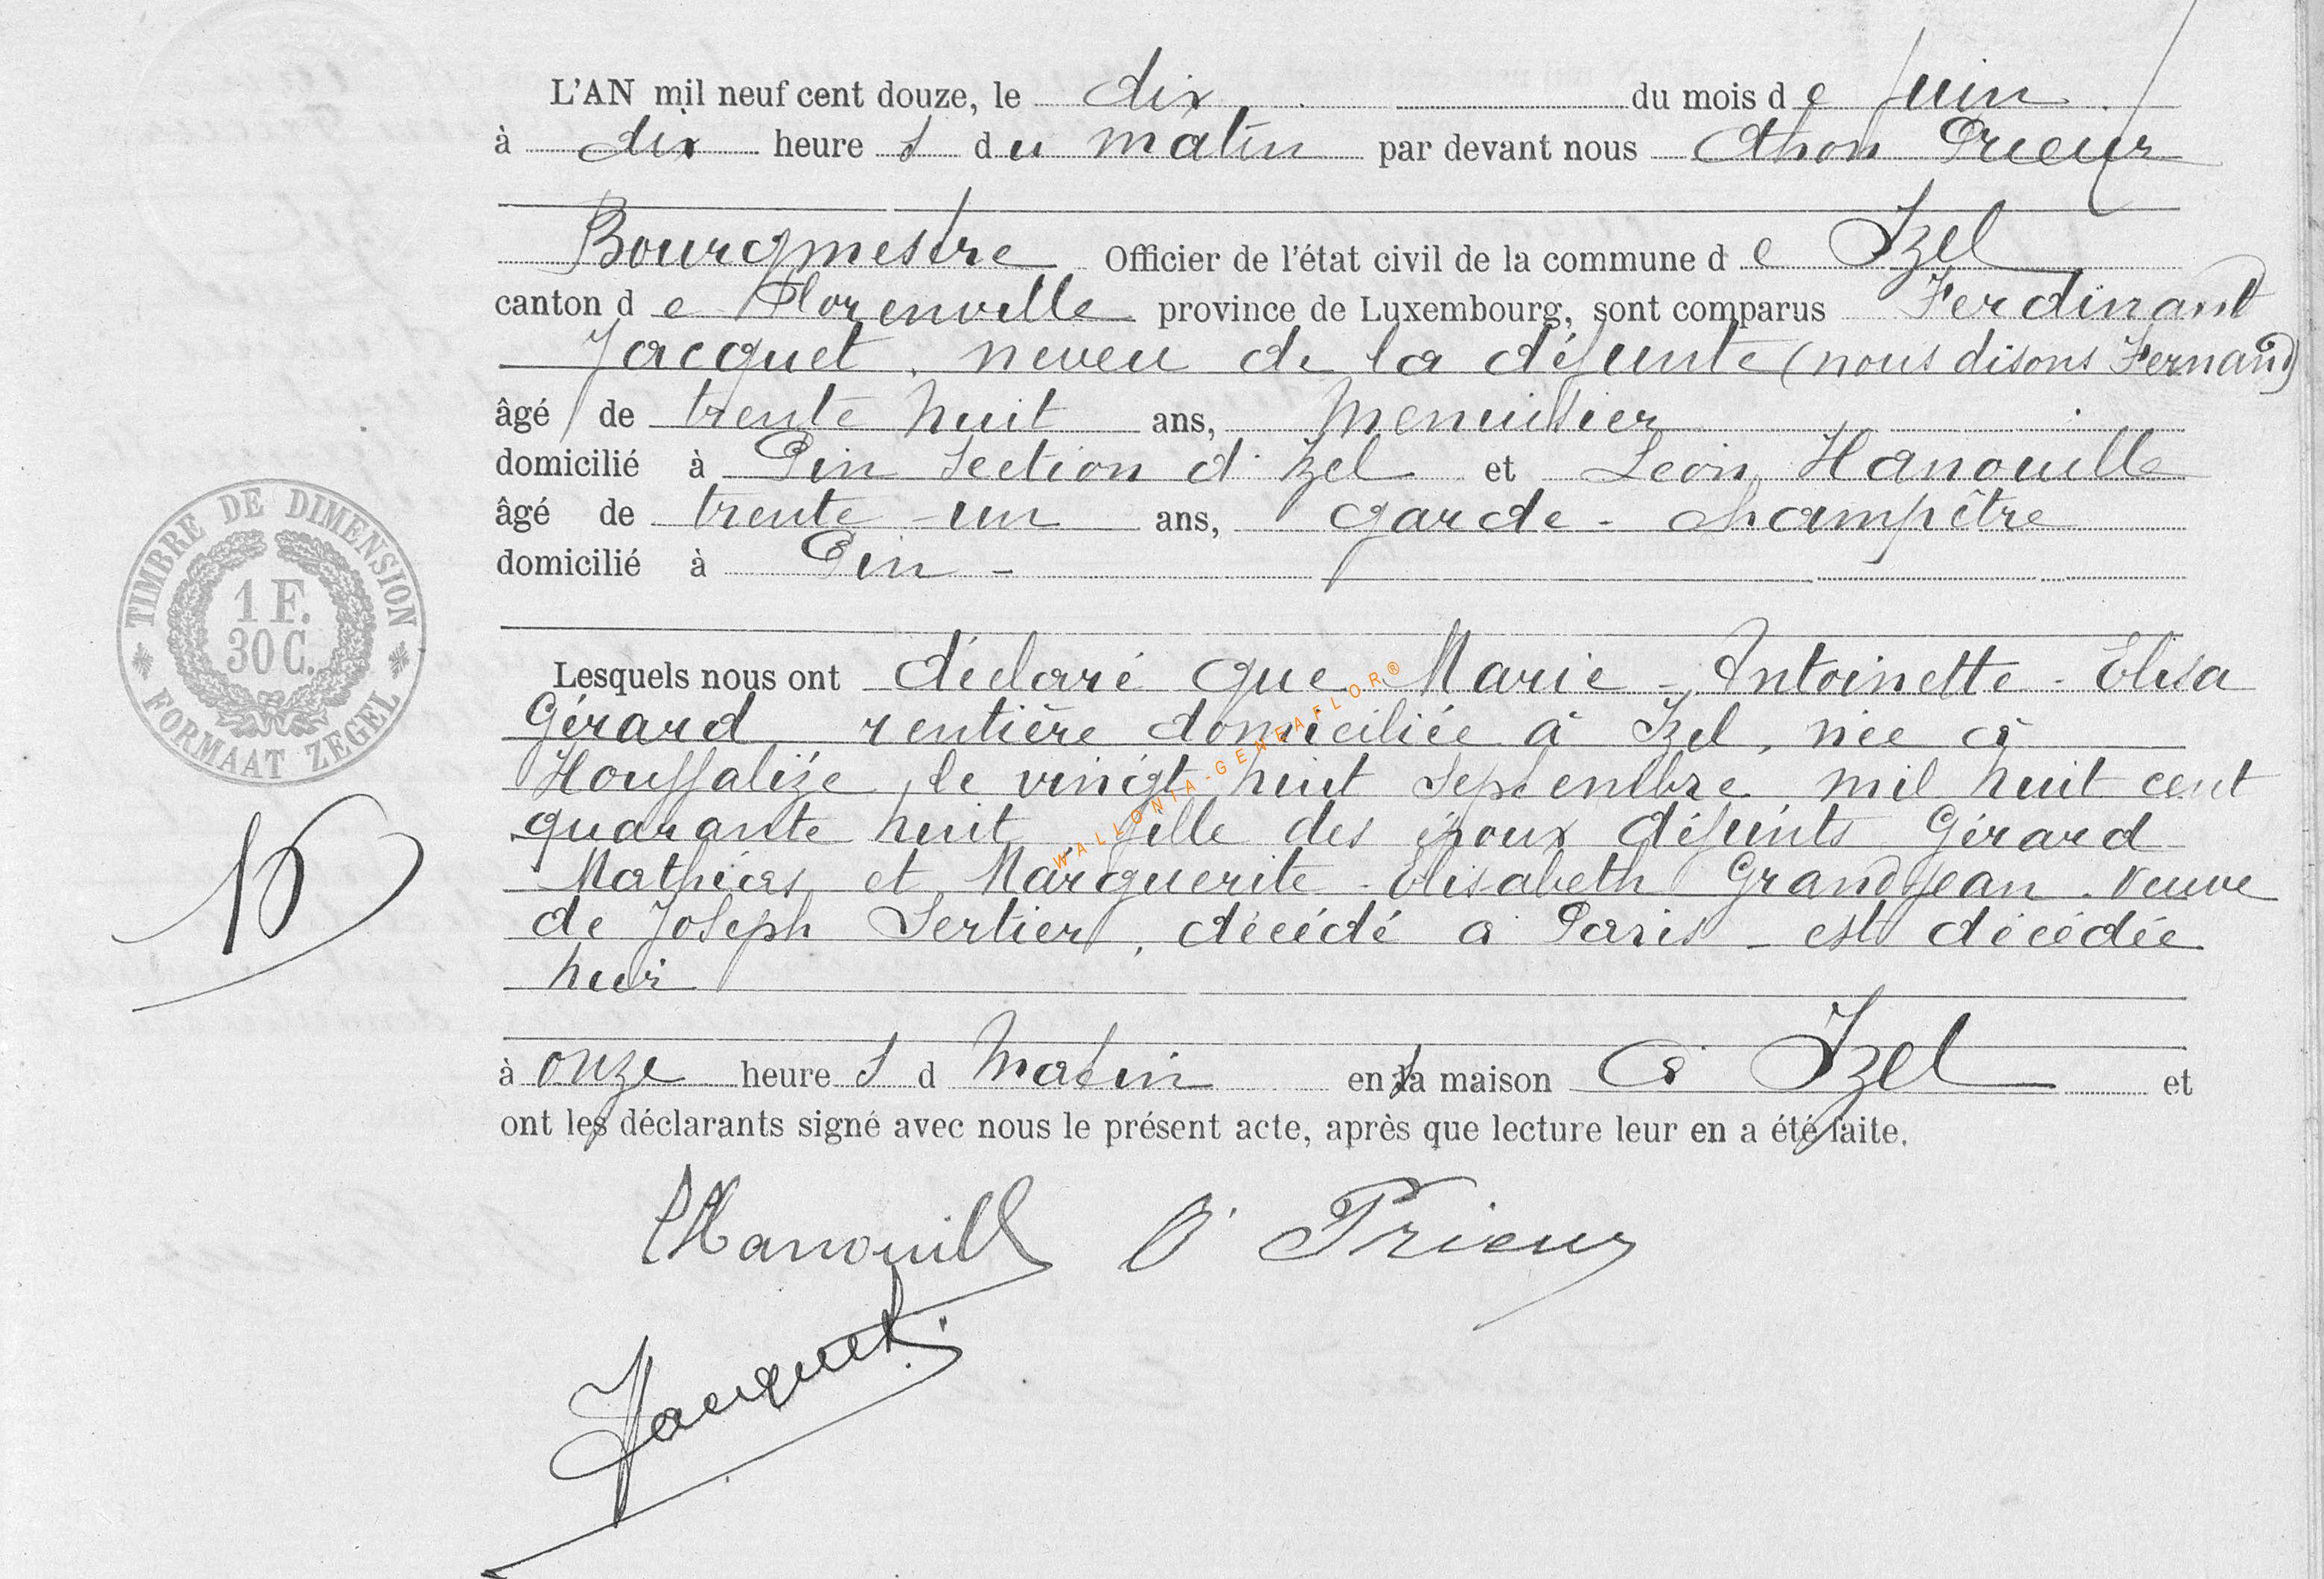 L'AN mil neuf cent douze, le dix du mois de Juin
à dix heures du matin par devant nous Othon Prieur
Bourgmestre Officier de l'état civil de la commune de Izel
canton de Florenville province de Luxembourg, sont comparus Ferdinand
Jacquet, neveu de la défunte (nous disons Fernand)
âgé de trente huit ans, menuisier
domicilié à Pin Section d'Izel et Leon Hanouille
âgé de trente-un ans, garde-champêtre
domicilié à Pin -
Lesquels nous ont déclaré que Marie-Antoinette-Elisa
Gérard rentière domiciliée à Izel, née à
Houffalize, le vingt huit Septembre mil huit cent
quarante huit fille des époux défunts Gérard
Mathias et Marguerite-Elisabeth Grandjean. Veuve
de Joseph Sertier, décédé à Paris - est décédée
hier
à onze heures d matin en la maison à Izel et
ont les déclarants signé avec nous le présent acte, après que lecture leur en a été faite.
TIMBRE DE DIMENSION
1 F.
30 C.
FORMAAT ZEGEL
WALLONIA-GENEAFLOR®
LHanouille O Prieur
Jacquet